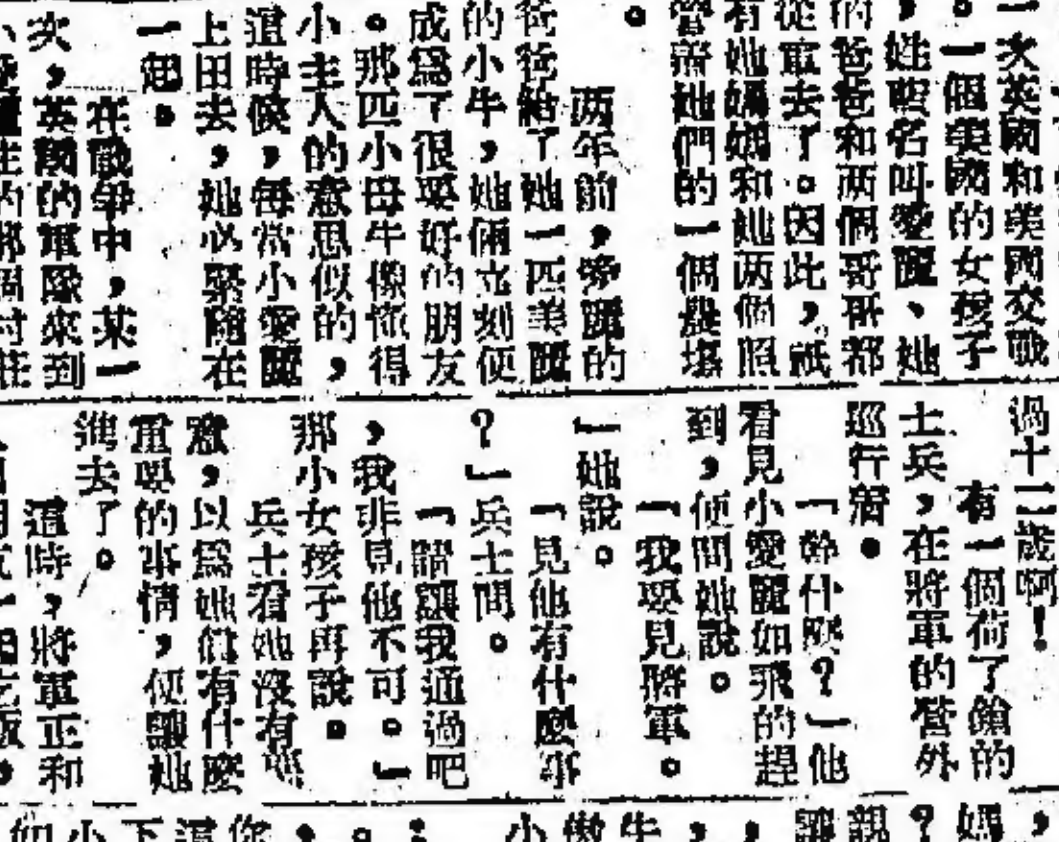 一次英國和美國交戰
。一個美國的女孩子
，姓
名叫愛麗、她
的爸爸和两個哥哥都
從軍去了。因此，祇
有她媽媽和她两個照
管着她們的一個農場
。
两年前，
麗的
爸爸給了她一匹美麗
的小牛，她倆立刻便
成爲了很要好的朋友
。那匹小母牛像懂得
小主人的意思似的，
這時候，每當小愛麗
上田去，她必緊隨在
一起。
在戰爭中，某一
次，英國的軍隊來到
的那個村莊
過十二歲啊！
有一個荷了鎗的
士兵，在將軍的營外
巡行着。
「幹什麽？」他
看見小愛麗如飛的趕
到，便問她說。
「我要見將軍。
」她說。
「見他有什麽事
？」兵士問。
「請讓我通過吧
，我非見他不可。」
那小女孩子再說。
兵士看她沒有惡
意，以爲她真有什麽
重要的事情，便讓她
進去了。
這時，將軍正和